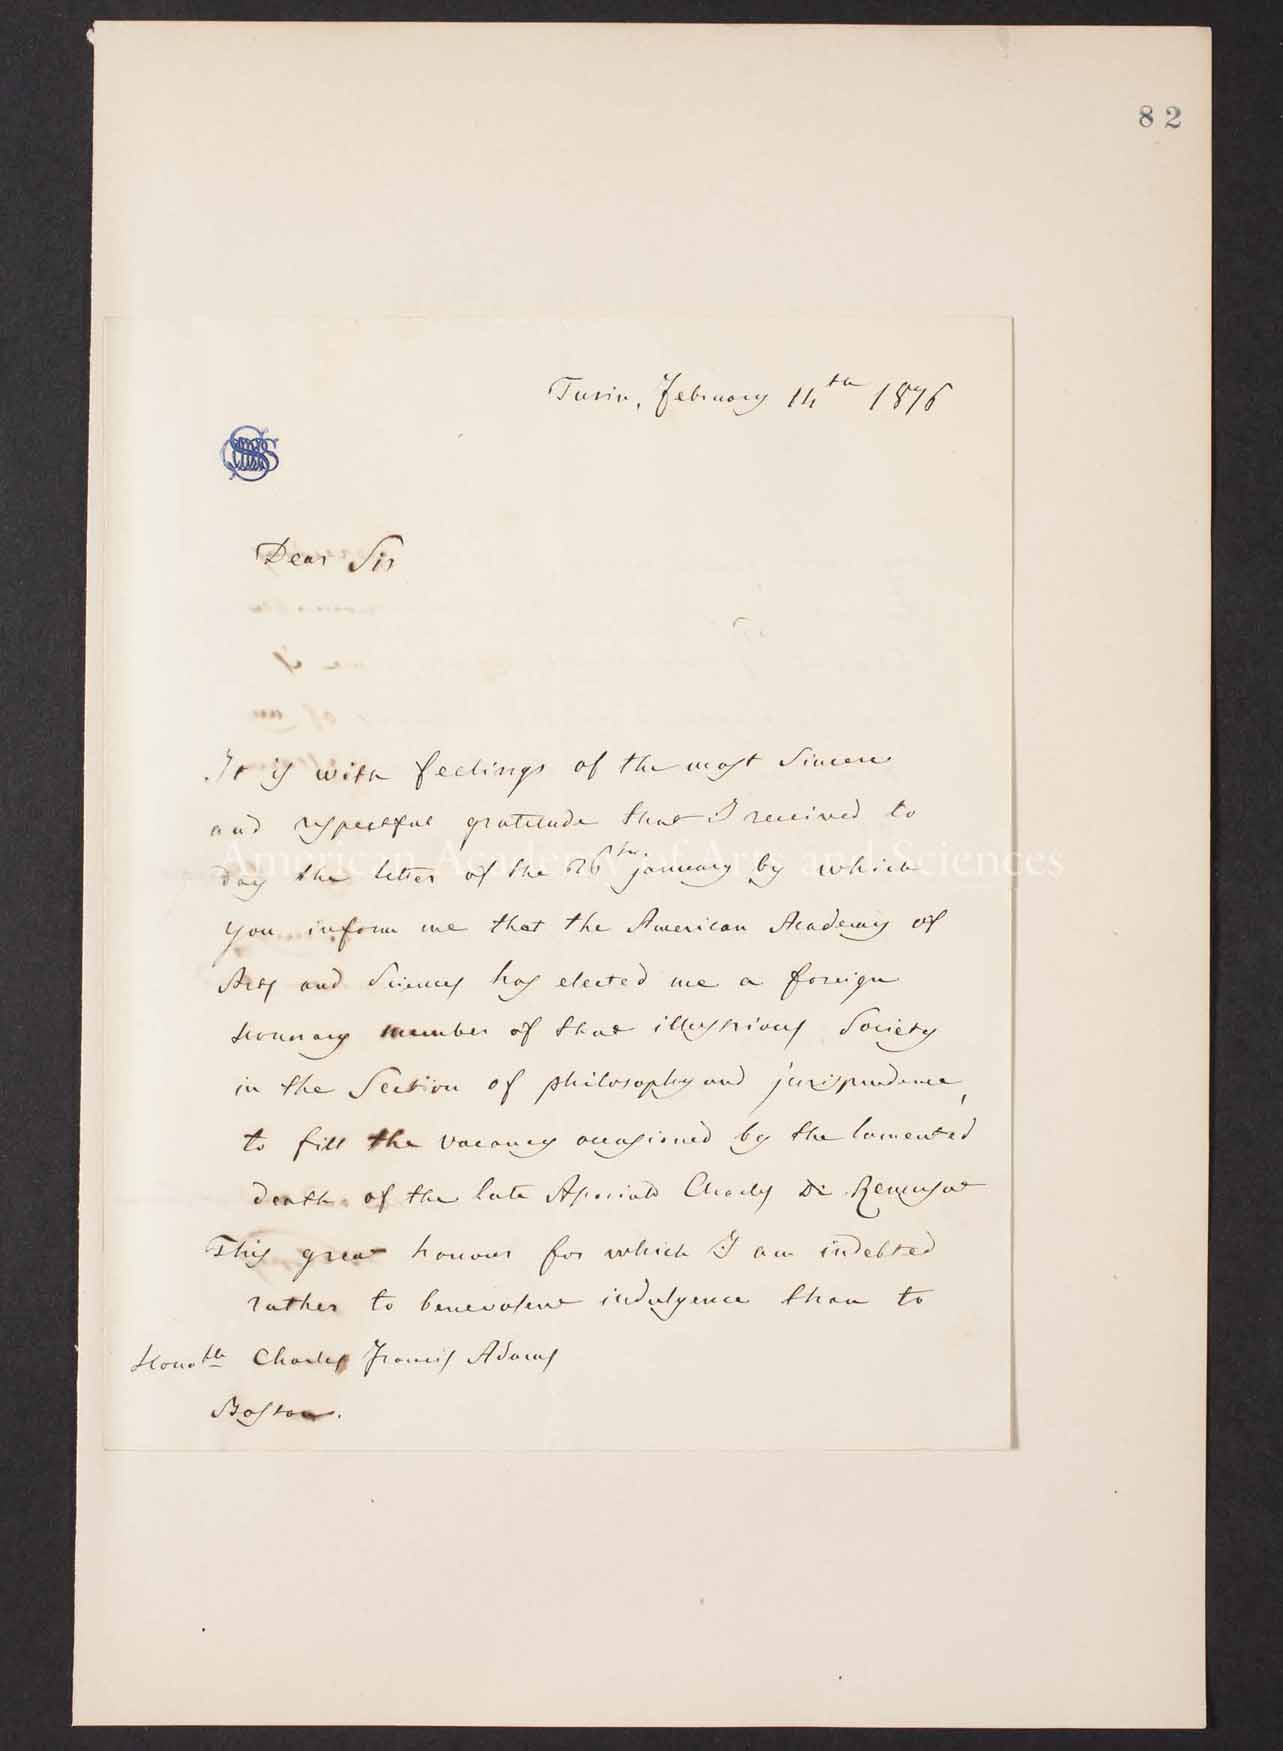 82
Turin, February 14th 1876
Dear Sir
It is with feelings of the most sincere
and respectful gratitude that I received to
day the letter of the 26th january by which
American Academy of Arts and Sciences
you inform me that the American Academy of
Arts and Sciences has elected me a foreign
honorary member of that illustrious Society
in the Section of philosophy and jurisprudence,
to fill the vacancy occasioned by the lamented
death of the late Associate Charles De Remusat
This great honour for which I am indebted
rather to benevolent indulgence than to
Honoble Charles Francis Adams
Boston.